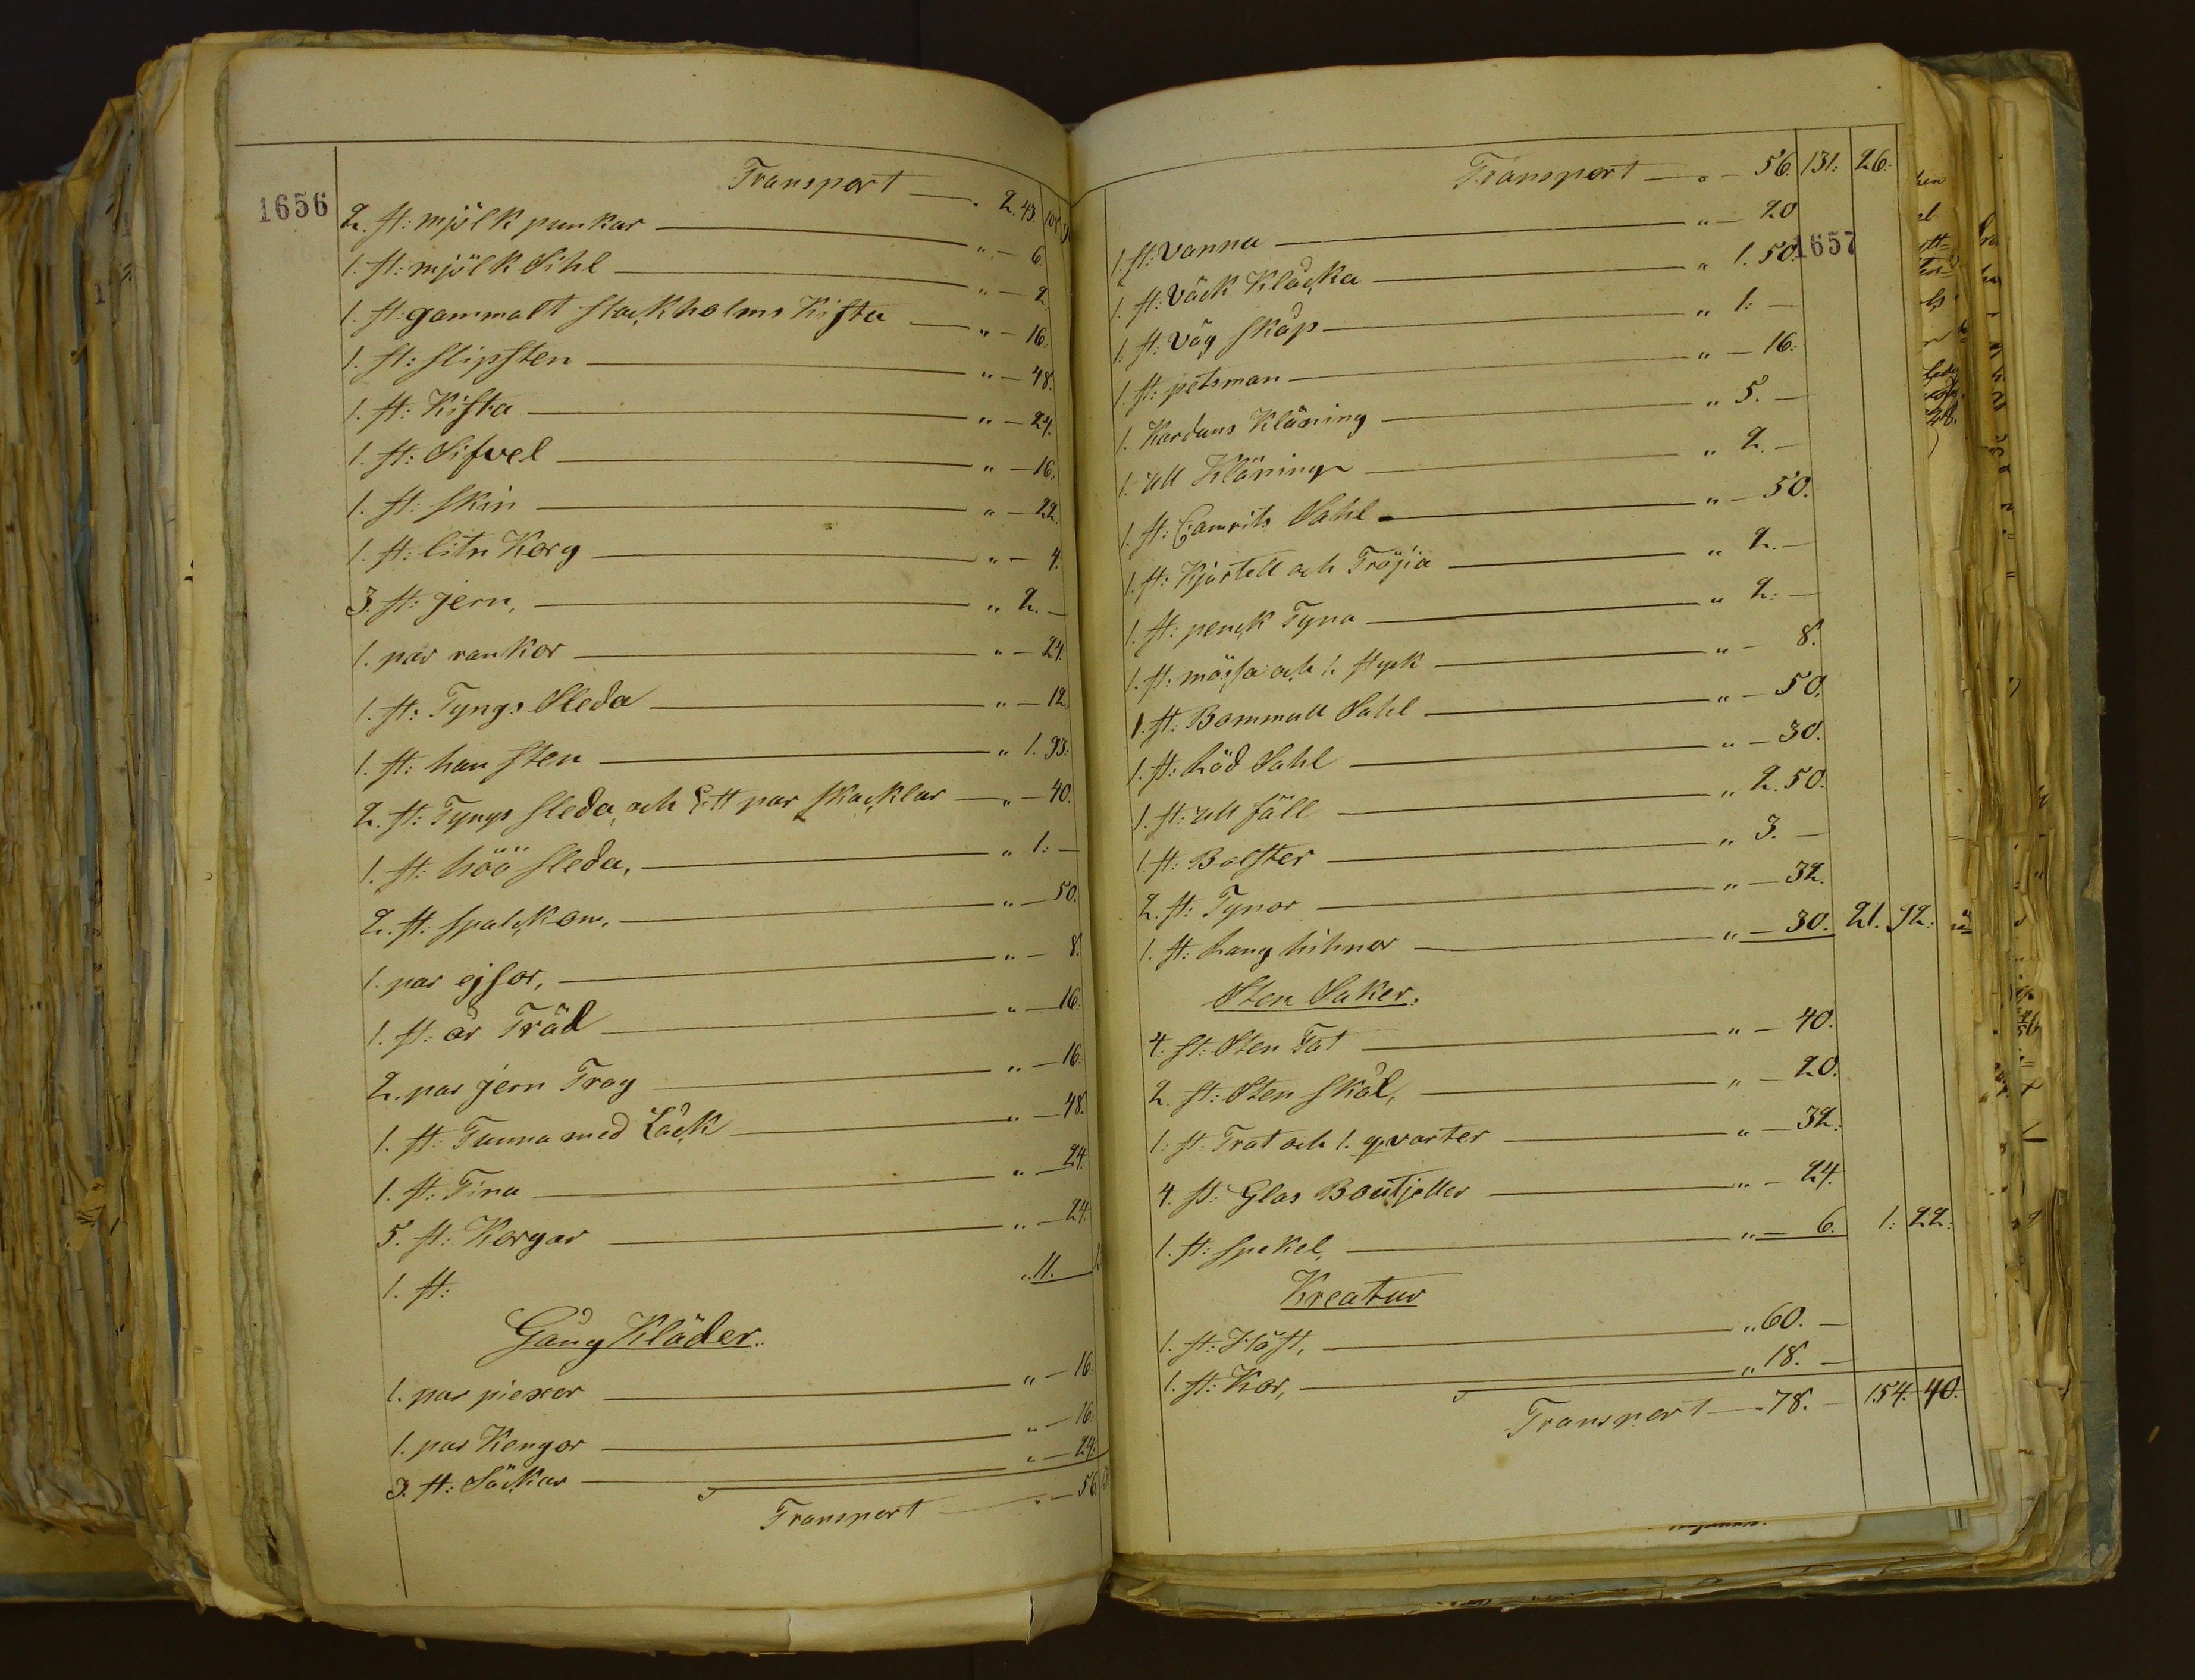 1656
Transport — „ 2. 43.
2. st: mjölk punkar — „ — 6.
1. st: mjölk Sihl — „ — 2.
1. st: gammalt stockholms Kista — „ — 16.
1. st: slipsten — „ — 48.
1. st: Kista — „ — 24.
1. st: Sifvel — „ — 16.
1. st: skin — „ — 22.
1. st: litn Korg — „ — 4.
3. st: jern, — „ 2. —
1. par rankor — „ — 24.
1. st: Tyngs Sleda — „ — 12.
1. st: han sten — „ 1. 93.
2. st: Tyngs sleda, och Ett par skacklar — „ — 40.
1. st: höö sleda, — „ 1: —
2. st: spalckom, — „ — 50.
1. par ejsor, — „ — 8.
1. st: år Träd — „ — 16.
2. par jern Trag — „ — 16.
1. st: Tunna med Låck — „ — 48.
1. st: Tina — „ — 24.
5. st: Korgar — „ — 24.
1. st: „ 11.
Gång Kläder.
1. par piexor — „ — 16.
1. par Kengor — „ — 16.
3. st: Säckar — „ — 24.
Transport — „ — 56.
1657
Transport — „ — 56. 131: 26.
1. st: Vanna — „ — 20
1. st: Väck Klåcka — „ 1. 50.
1. st: Väg skåp — „ 1: —
1. st: petsman — „ — 16:
1. Karduns Kläning — „ 5. —
1. ull Kläning — „ 2. —
1. st: Camrits Sahl — „ — 50.
1. st: Kjortell och Tröjia — „ 2. —
1. st: penck Tyna — „ 2: —
1. st: mössa och 1. styck — „ — 8.
1. st: Bommull Sahl — „ — 50.
1. st: Löd Sahl — „ — 30.
1. st: ull fäll — „ 2. 50.
1. st: Bolster — „ 3. —
2. st: Tynor — „ — 32.
1. st: Lang hihnor — „ — 30. 21. 92:
Sten Saker.
4. st: Sten Fat — „ — 40.
2. st: Sten skål, — „ — 20.
1: st: Trat och 1. qvarter — „ — 32.
4. st: Glas Boutjeller — „ — 24.
1. st: spekel, — „ — 6. 1: 22:
Kreatur
1. st: Häst, — „ 60. —
1. st: Kor, — „ 18. —
Transport — 78. — 154. 40.